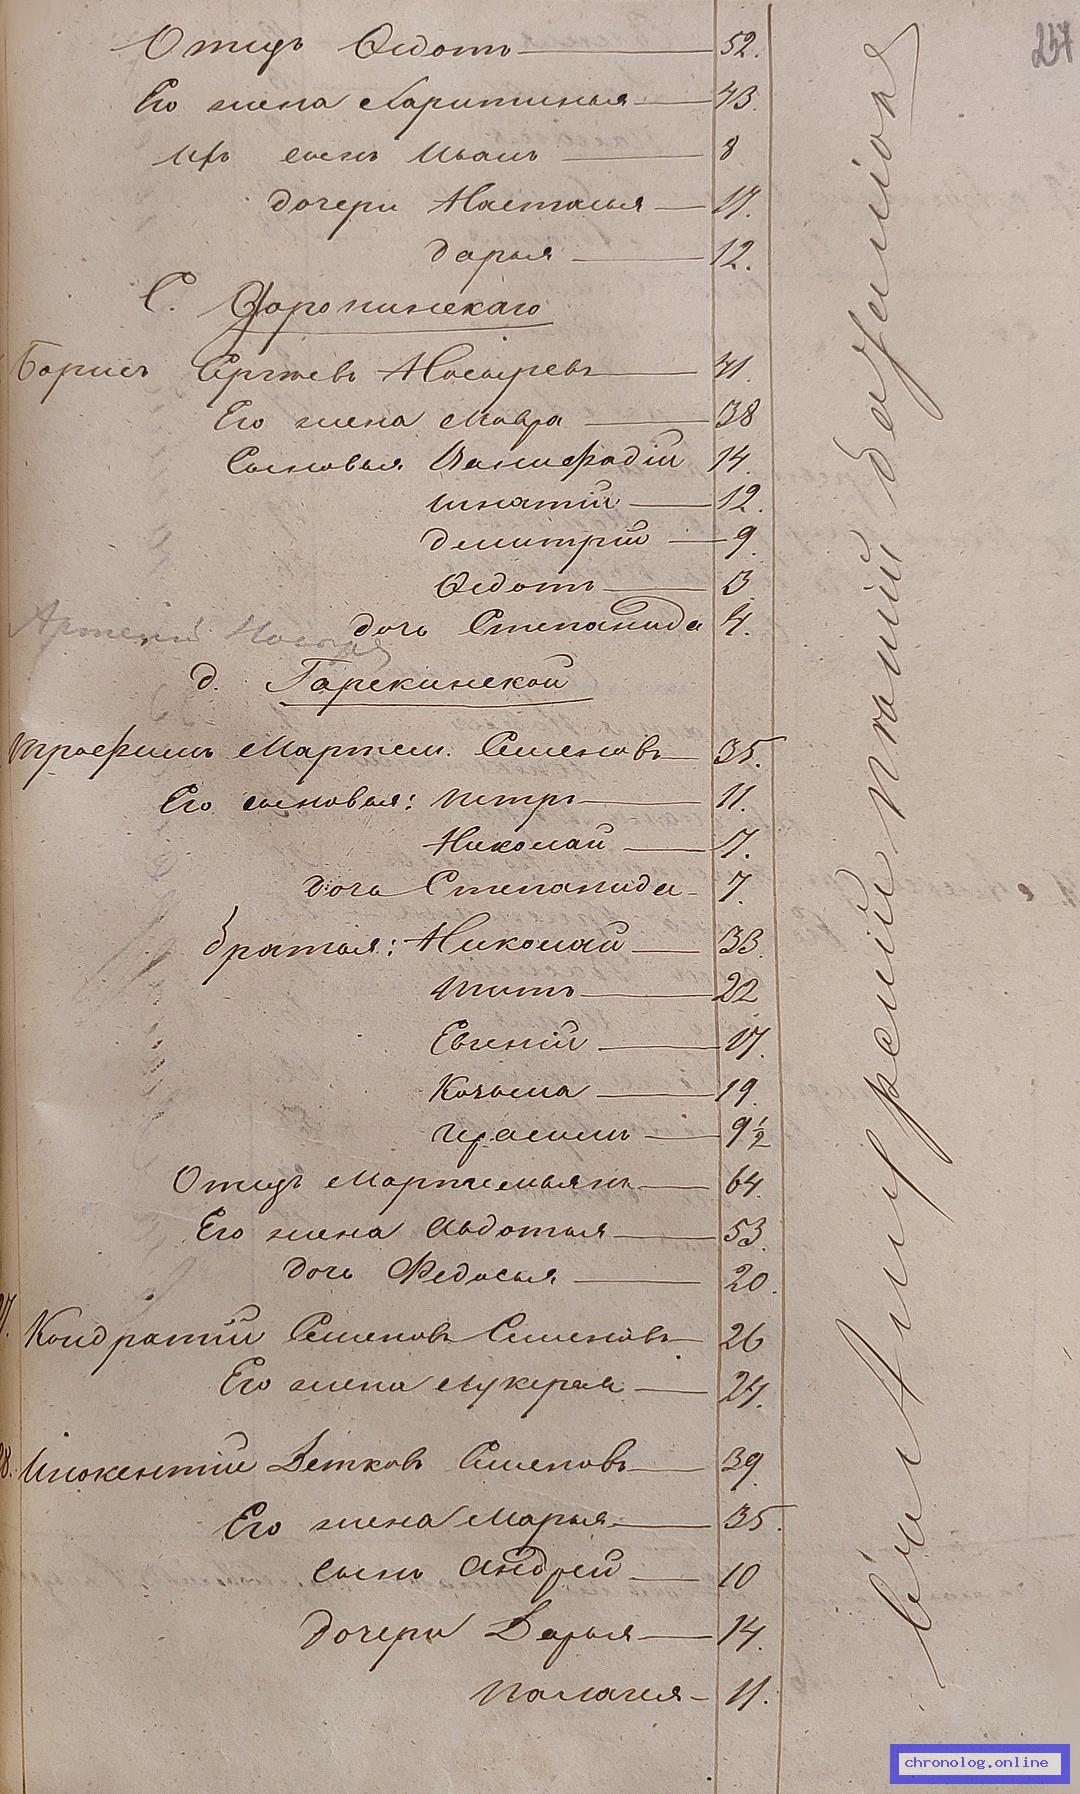 257
Отецъ Ѳедотъ 52.
Его жена Харитинья 43.
Ихъ сынъ Иванъ 8
дочери Настасья 17.
Дарья 12.
С. Доронинскаго
Борисъ Сергѣевъ Носыревъ 41.
Его жена Мавра 38
Сыновья 14.
Игнатій 12.
Димитрій 9.
Ѳедотъ 3
дочь Степанида 4.
Артемій
д.
Трофимъ Мартем. Семеновъ 35.
Его сыновья: Петръ 11.
Николай 7.
дочь Степанида 7.
братья: Николай 33.
Титъ 22
Евгеній 17.
Козьма 19.
Герасимъ 9 1/2
Отецъ Мартемьянъ 64.
Его жена Авдотья 53.
дочь Федосья 20.
27. Кондратій Семеновъ Семеновъ 26
Его жена Лукерья 24.
28. Инокентій Семеновъ 39
Его жена Марья 35.
сынъ Андрей 10
Дочери Дарья 14.
Палагея 11.
chronolog.online